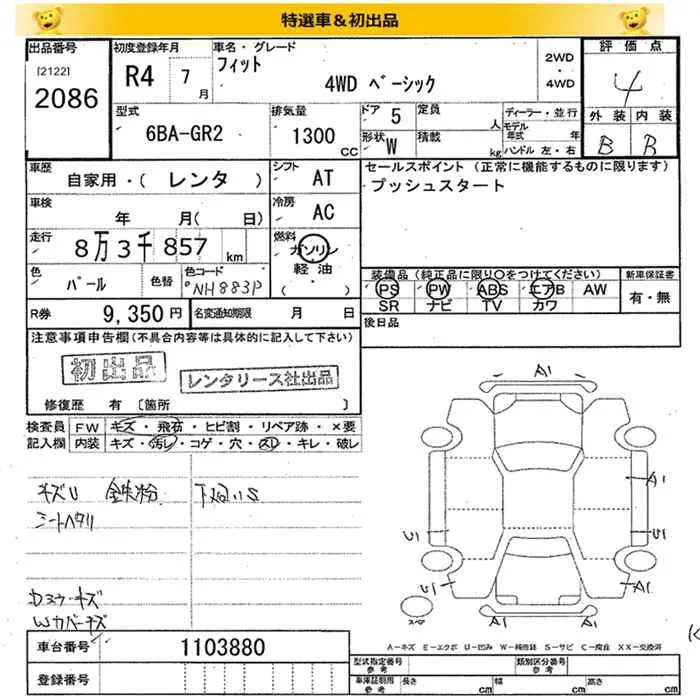 特選車＆初出品
出品番号 初度登録年月 車名・グレード 評価点
[2122]
2086
R4 7月
フィット
4WD ベーシック
2WD
4WD
4
型式
6BA-GR2
排気量
1300 CC
ドア 5 定員 人
形状 W 積載 kg
ディーラー・並行
モデル年式 年
ハンドル 左・右
外装 内装
B B
車歴
自家用・( レンタ )
シフト AT
セールスポイント (正常に機能するものに限ります)
プッシュスタート
車検
年 月( 日)
冷房 AC
走行
8万3千857 km
燃料
ガソリン
軽油
( )
色
パール
色替
色コード
NH883P
装備品 (純正品に限り○をつけてください) 新車保証書
PS PW ABS エアB AW
SR ナビ TV カワ
有・無
R券 9,350円 名変通知期限 月 日
後日品
注意事項申告欄(不具合内容等は具体的に記入して下さい)
初出品
レンタリース社出品
修復歴 有 〔箇所 〕
検査員 FW キズ・飛石・ヒビ割・リペア跡・×要
記入欄 内装 キズ・汚レ・コゲ・穴・スレ・キレ・破レ
キズU 鉄粉 下廻りS
シートヘタリ
Wカバーキズ
A1
A1
U1
U1
U1
A1
A1
スペア
A-キズ E-エクボ U-凹み W-補修跡 S-サビ C-腐食 XX-交換済
車台番号 1103880
登録番号
型式指定番号 参考 類別区分番号 参考
車庫証明用 参考 長さ cm 幅 cm 高さ cm